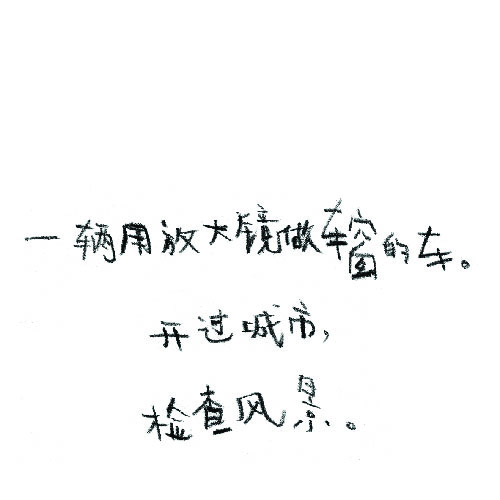 一辆用放大镜做车窗的车。
开过城市，
检查风景。